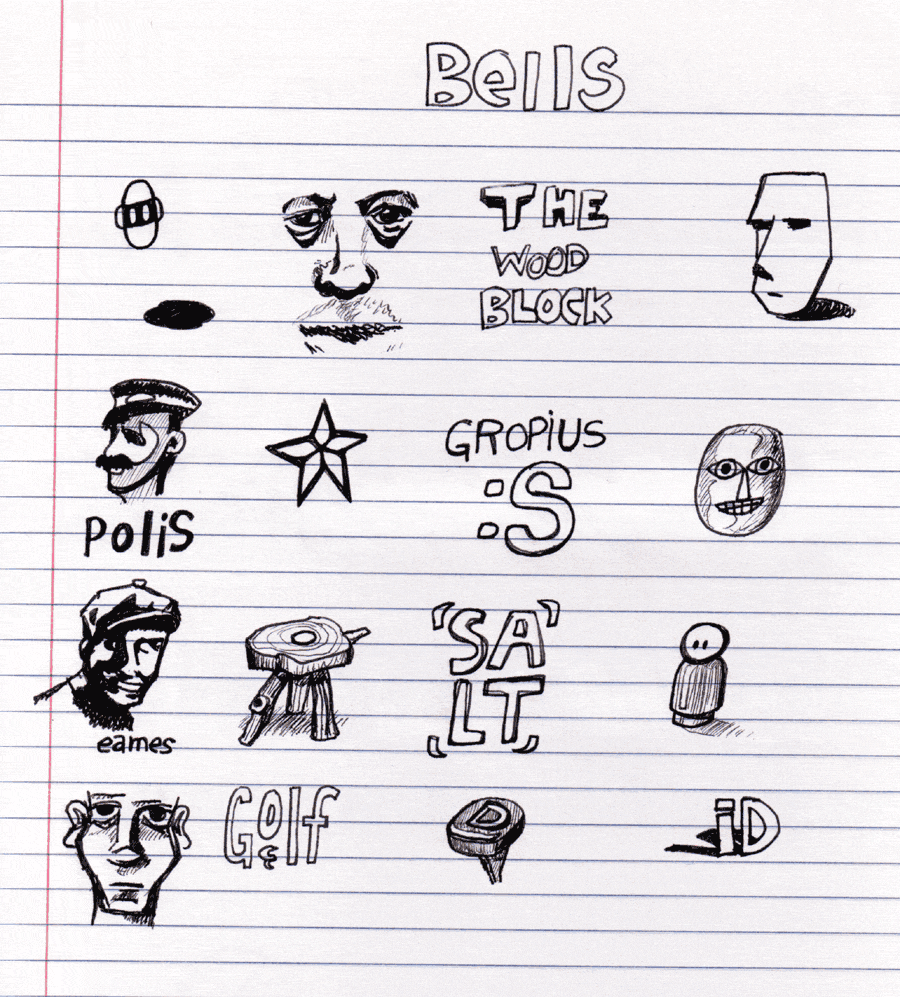 Bells
THE
WOOD
BLOCK
GROPIUS
:S
POLiS
'SA'
LT
eames
Golf
D
iD